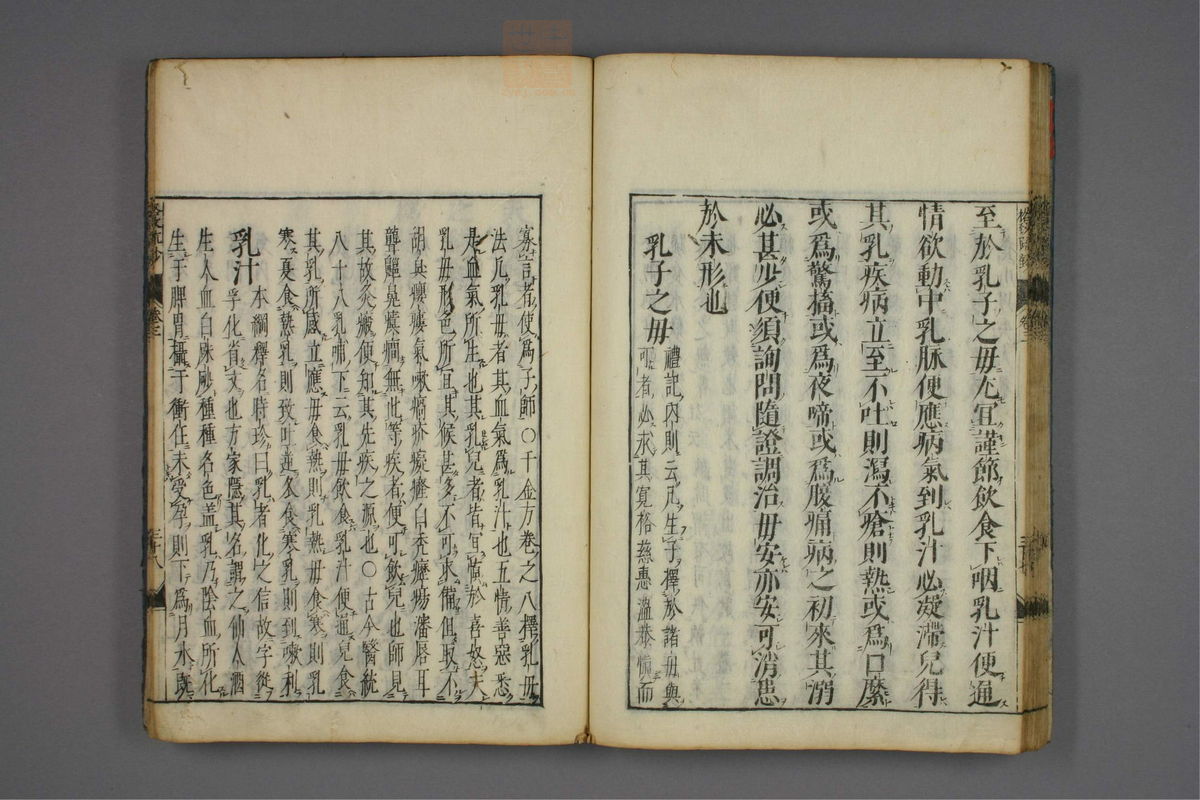 至於乳子之母尤宜謹節飲食下咽乳汁便通
情欲動中乳脉便應病氣到乳汁必凝滯兒得
其乳疾病立至不吐則瀉不瘡則熱或爲口糜
或爲驚搐或爲夜啼或爲腹痛病之初來其溺
必甚少便須詢問隨證調治毋安亦安可消患
於未形也
乳子之毋
禮記内則云凡生子擇於諸毋與
可者必求其寬裕慈惠溫恭愼而
寡言者使爲子師○千金方卷之八擇乳毋
法凡乳毋者其血氣爲乳汁也五情善惡悉
是血氣所生也其乳兒者皆宜愼於喜怒夫
乳毋形色所宜其候甚多不可求備但取不
胡臭癭瘻氣嗽瘑疥癡癃白禿癧瘍瀋唇耳
聾齆鼻癲癇無此等疾者便可飲兒也師見
其故灸瘢便知其先疾之源也○古今醫統
八十八乳哺下云乳毋飲食乳汁便通兒食
其乳所感立應毋食熱則乳熱毋食寒則乳
寒夏食熱乳則致吐逆冬食寒乳則到嗽利
乳汁
本綱釋名時珍曰乳者化之信故字從
孚化省文也方家隱其名謂之仙人酒
生人血白朱砂種種名色盖乳乃陰血所化
生于脾胃攝于衝任未受孕則下爲月水既
卷三
三十七
三十八